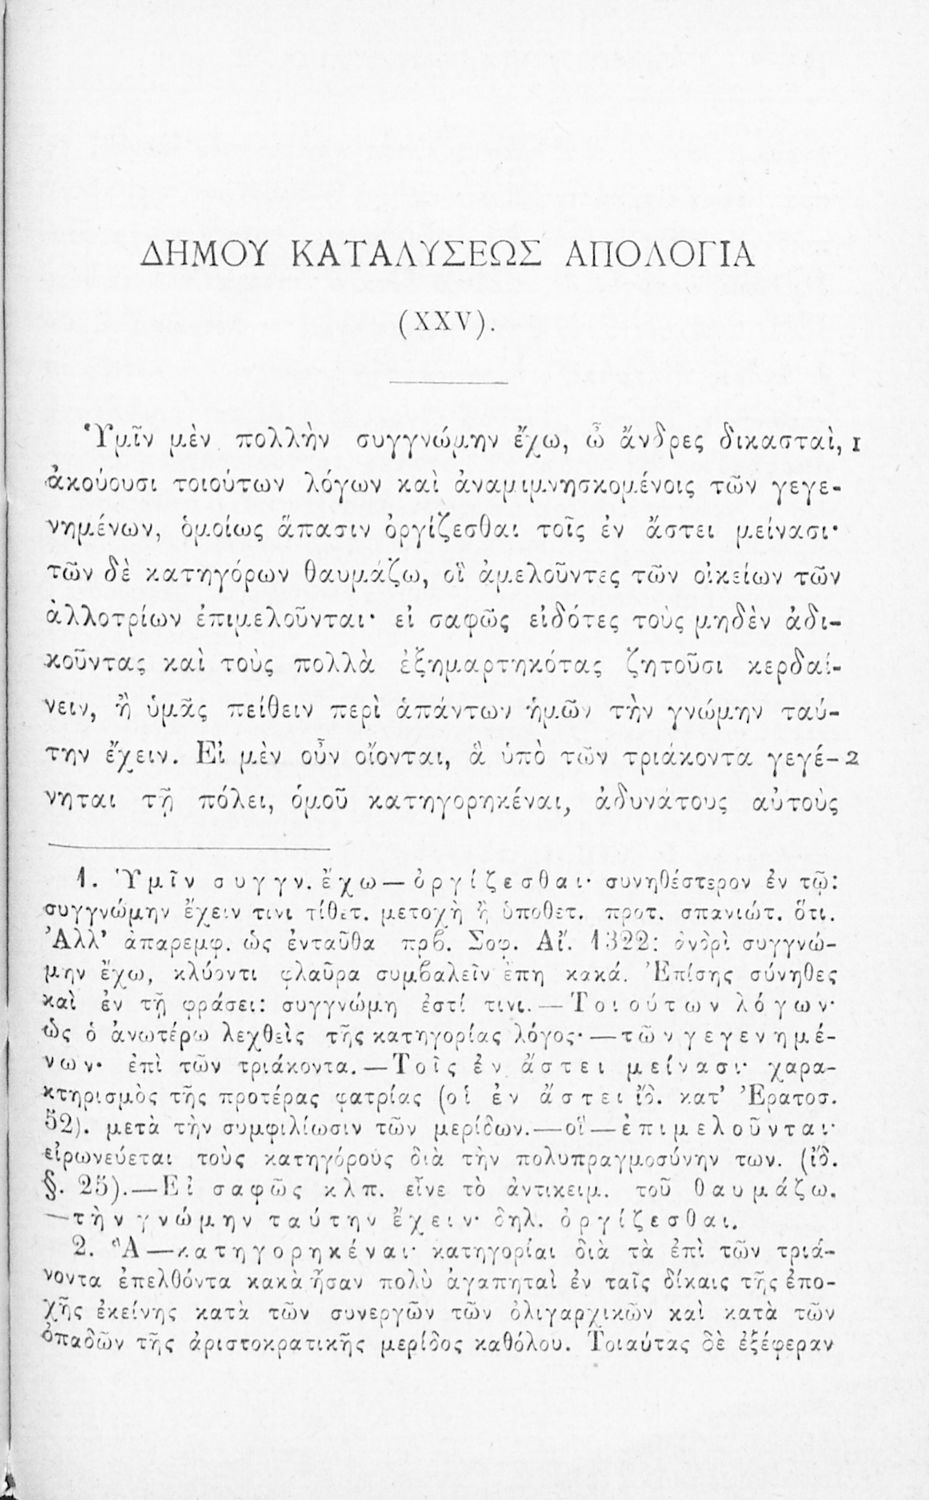 ΔΗΜΟΥ ΚΑΤΑΛΥΣΕΩΣ ΑΠΟΛΟΓΙΑ
(XXV).
Ὑμῖν μὲν πολλὴν συγγνώμην ἔχω, ὦ ἄνδρες δικασταὶ, 1
ἀκούουσι τοιούτων λόγων καὶ ἀναμιμνησκομένοις τῶν γεγε-
νημένων, ὁμοίως ἅπασιν ὀργίζεσθαι τοῖς ἐν ἄστει μείνασι·
τῶν δὲ κατηγόρων θαυμάζω, οἳ ἀμελοῦντες τῶν οἰκείων τῶν
ἀλλοτρίων ἐπιμελοῦνται· εἰ σαφῶς εἰδότες τοὺς μηδὲν ἀδι-
κοῦντας καὶ τοὺς πολλὰ ἐξημαρτηκότας ζητοῦσι κερδαί-
νειν, ἢ ὑμᾶς πείθειν περὶ ἁπάντων ἡμῶν τὴν γνώμην ταύ-
την ἔχειν. Εἰ μὲν οὖν οἴονται, ἃ ὑπὸ τῶν τριάκοντα γεγέ- 2
νηται τῇ πόλει, ὁμοῦ κατηγορηκέναι, ἀδυνάτους αὐτοὺς
1. Ὑμῖν συγγν. ἔχω — ὀργίζεσθαι· συνηθέστερον ἐν τῷ:
συγγνώμην ἔχειν τινι τίθετ. μετοχὴ ἢ ὑποθετ. προτ. σπανιώτ. ὅτι.
Ἀλλ' ἀπαρεμφ. ὡς ἐνταῦθα πρβ. Σοφ. Αἴ. 1322: ἀνδρὶ συγγνώ-
μην ἔχω, κλύοντι φλαῦρα συμβαλεῖν ἔπη κακά. Ἐπίσης σύνηθες
καὶ ἐν τῇ φράσει: συγγνώμη ἐστί τινι. — Τοιούτων λόγων·
ὡς ὁ ἀνωτέρω λεχθεὶς τῆς κατηγορίας λόγος· — τῶν γεγενημέ-
νων· ἐπὶ τῶν τριάκοντα. — Τοῖς ἐν ἄστει μείνασι· χαρα-
κτηρισμὸς τῆς προτέρας φατρίας (οἱ ἐν ἄστει ἴδ. κατ' Ἐρατοσ.
52). μετὰ τὴν συμφιλίωσιν τῶν μερίδων. — οἳ — ἐπιμελοῦνται·
εἰρωνεύεται τοὺς κατηγόρους διὰ τὴν πολυπραγμοσύνην των. (ἴδ.
§. 25). — Εἰ σαφῶς κλπ. εἶνε τὸ ἀντικειμ. τοῦ θαυμάζω.
— τὴν γνώμην ταύτην ἔχειν· δηλ. ὀργίζεσθαι.
2. Ἃ — κατηγορηκέναι· κατηγορίαι διὰ τὰ ἐπὶ τῶν τριά-
κοντα ἐπελθόντα κακὰ ἦσαν πολὺ ἀγαπηταὶ ἐν ταῖς δίκαις τῆς ἐπο-
χῆς ἐκείνης κατὰ τῶν συνεργῶν τῶν ὀλιγαρχικῶν καὶ κατὰ τῶν
ὀπαδῶν τῆς ἀριστοκρατικῆς μερίδος καθόλου. Τοιαύτας δὲ ἐξέφεραν